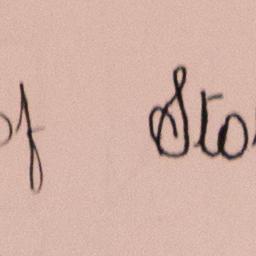 of Sto